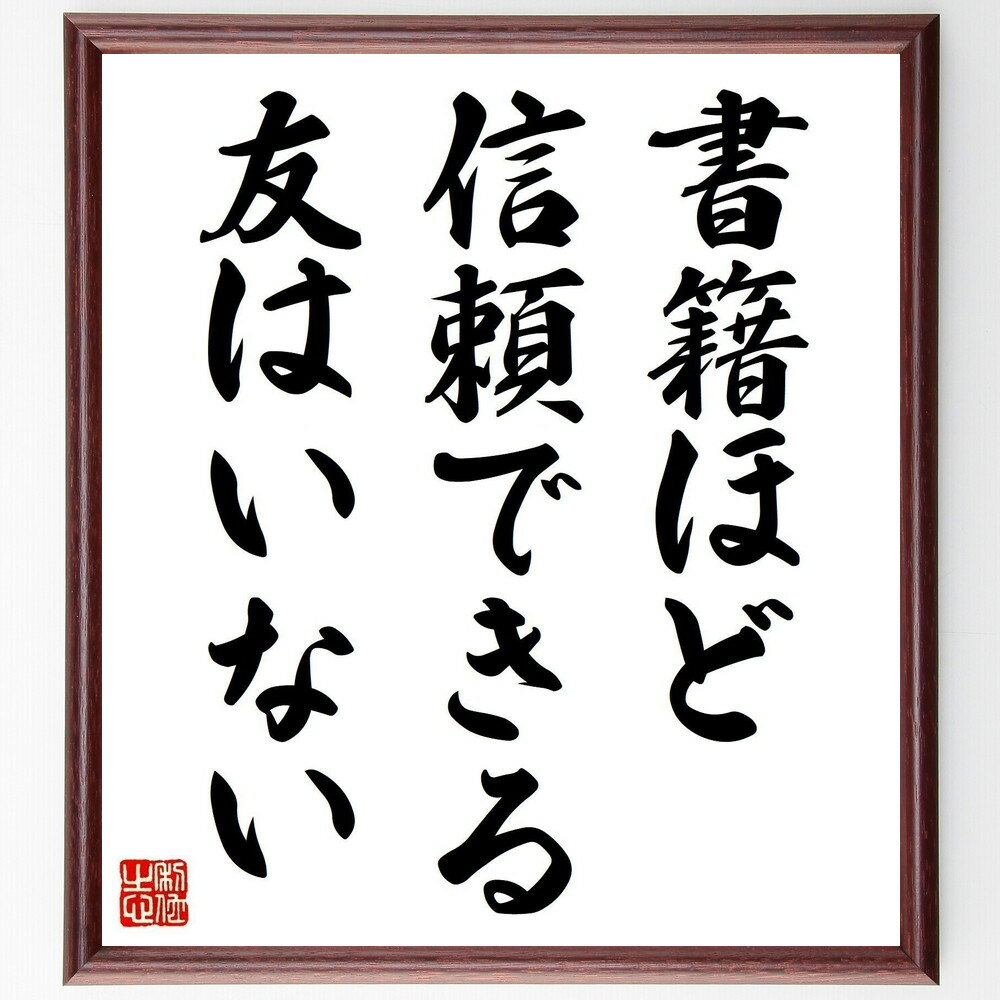 書籍ほど
信頼できる
友はいない